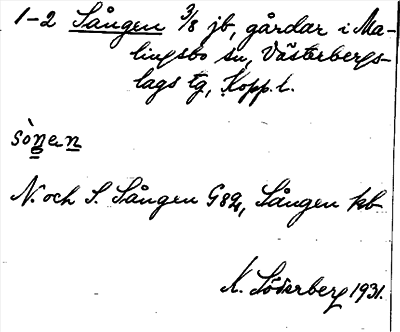 1-2 Sången 3/8 jb, gårdar i Ma-
lingsbo sn, Västerbergs-
lags tg, Kopp. l.
sòŋen
N. och S. Sången G82, Sången kb
K. Söderberg 1931.